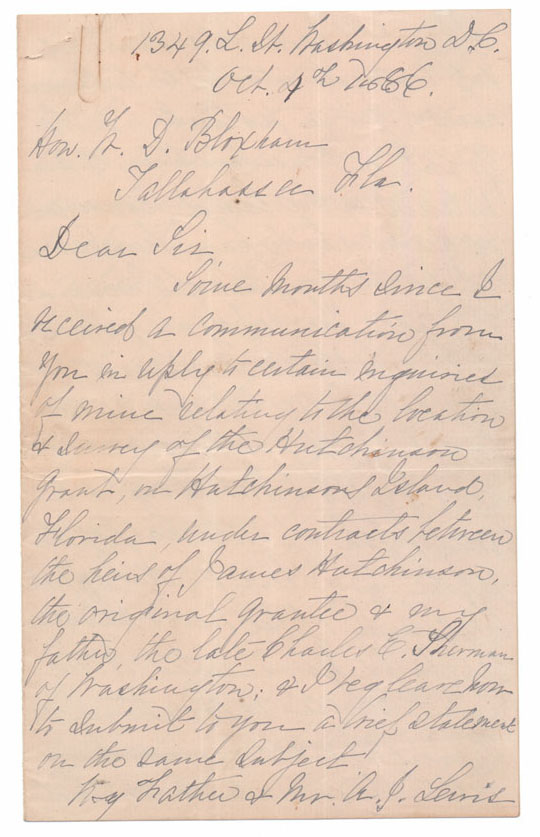 1349. L. St. Washington D.C.
Oct. 4th 1886.
Hon. W. D. Bloxham
Tallahassee Fla.
Dear Sir
Some Months since I
received a communication from
you in reply to certain inquiries
of mine relating to the location
& survey of the Hutchinson
Grant, on Hutchinsons Island,
Florida, under contracts between
the heirs of James Hutchinson,
the original Grantee & my
father, the late Charles E. Sherman
of Washington; & I beg leave now
to submit to you a brief statement
on the same subject
My Father & Mr. A. J. Lewis